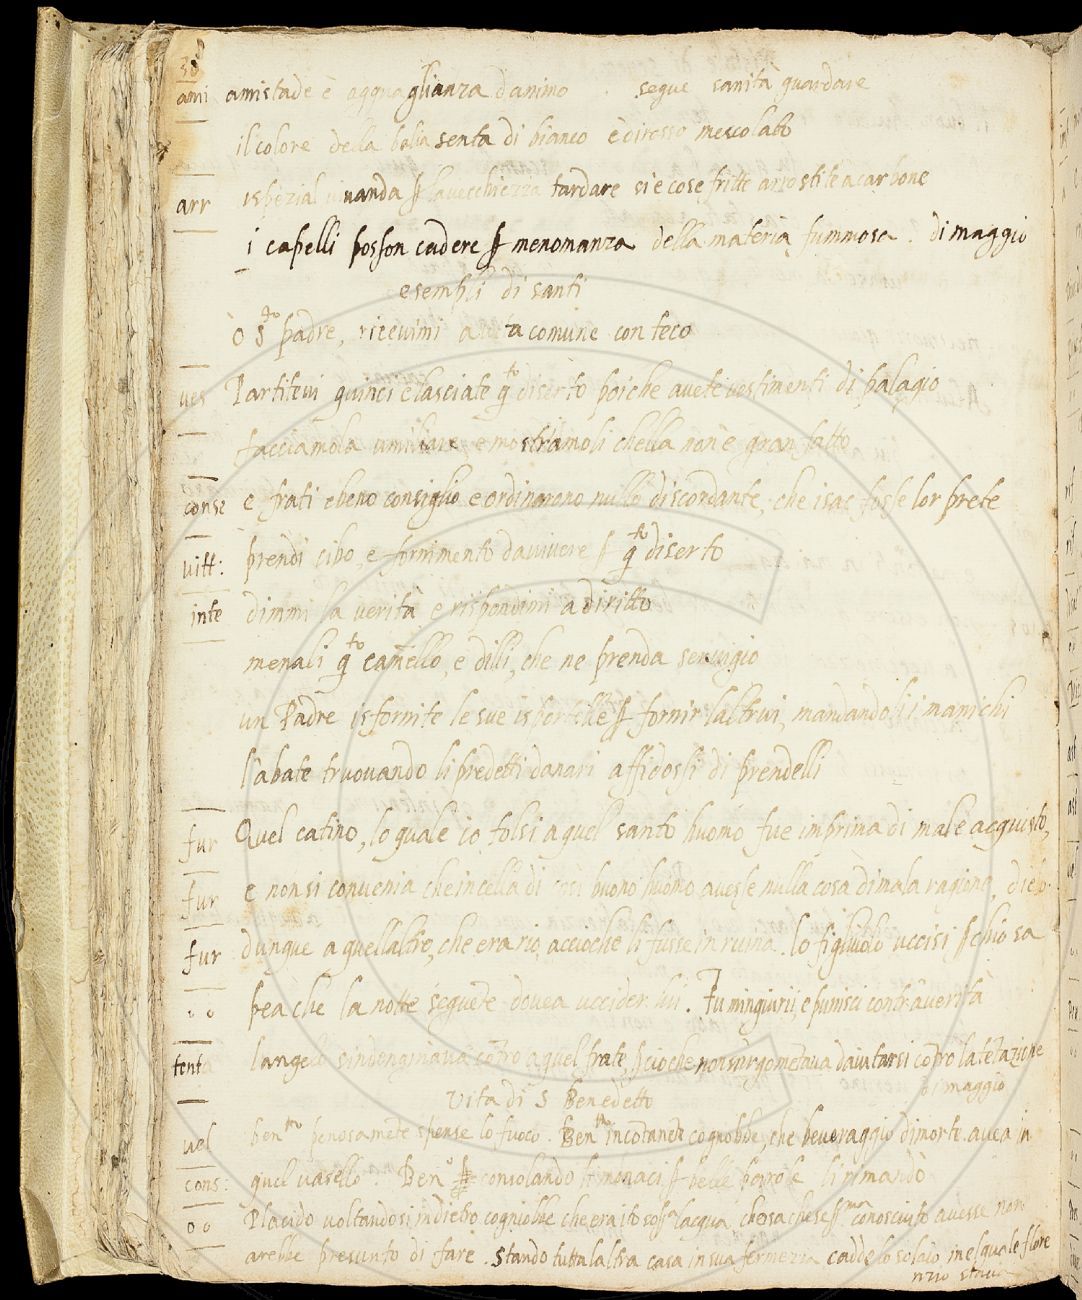 38
ami amistade è agguaglianza d'animo . segue sanità guardare
il colore della balia senta di bianco è di rosso mescolato
arr ispezial vivanda ꝑ la vecchiezza tardare sie cose fritte arrostite a carbone
i capelli posson cadere ꝑ menomanza della materia fummosa . di maggio
esempli di santi
ò S.to padre, ricevimi a vita comune con teco
ves Partitevi quinci e lasciate q.to diserto poiche avete vestimenti di palagio
facciamola umiliare e mostriamoli chella non è gran fatto
conse e frati ebeno consiglio e ordinarono nullo discordante, che isac fosse lor prete
vitt: prendi cibo, e fornimento da vivere ꝑ q.to diserto
inte dimmi la verità e rispondimi a diritto
menali q.to camello, e dilli, che ne prenda servigio
un Padre isfornite le sue isportelle ꝑ fornir laltrui, mandandoli i manichi
l'abate truovando li predetti danari affidosli di prendelli
fur Quel catino, lo quale io tolsi a quel santo huomo fue imprima di male acquisto,
fur e non si convenia che in cella di così buono huomo avesse nulla cosa di mala ragione, dielo
fur dunque a quellaltro, che era rio, accioche li fusse in ruina . lo figliuolo uccisi ꝑ chio sa
o o pea che la notte seguete dovea uccider lui . Tu mingiurii, e punisci contra verità
tenta langelo sindengniava cotro a quel frate, ꝑ cio che non singometava daiutarsi cotro la tetazione
di maggio
Vita di S Benedetto
vel ben.to penosamete spense lo fuoco . Ben.to incotanete cognobbe, che beveraggio di morte avea in
cons: quel vasello . Ben.o consolando li monaci ꝑ belle parole li rimandò
o o Placido voltandosi indietro cognobbe che era ito sopra lacqua, che sa chesse pma conosciuto avesse non
arebbe presunto di fare . stando tutta laltra casa in sua fermezza cadde lo solaio, inel quale flore
nzio stava